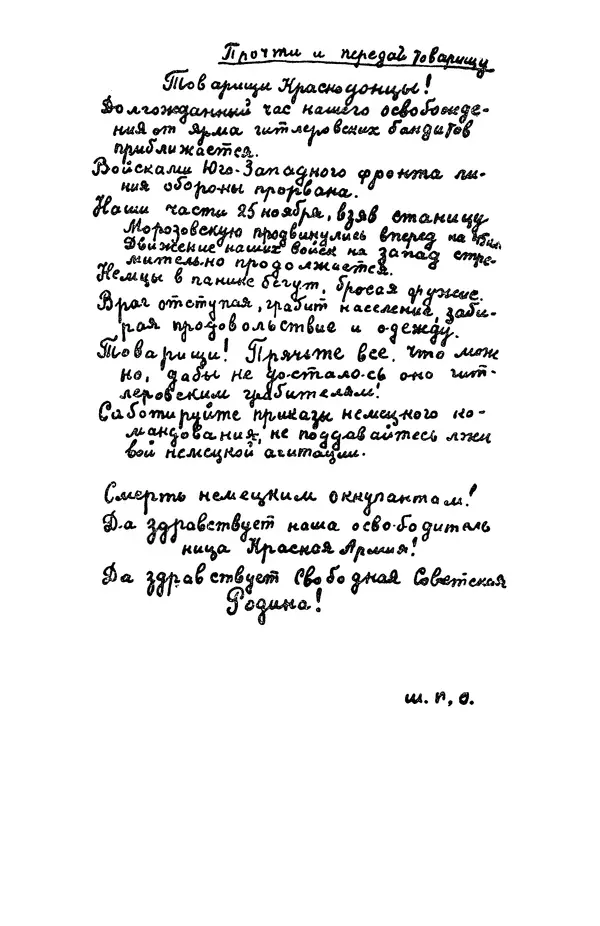 Прочти и передай товарищу
Товарищи Краснодонцы!
Долгожданный час нашего освобожде-
ния от ярма гитлеровских бандитов
приближается.
Войсками Юго-Западного фронта ли-
ния обороны прорвана.
Наши части 25 ноября, взяв станицу
Морозовскую продвинулись вперед на
Движение наших войск на запад стре-
мительно продолжается.
Немцы в панике бегут, бросая оружие.
Враг отступая, грабит население, заби-
рая продовольствие и одежду.
Товарищи! Прячьте все, что мож
но, дабы не досталось оно гит-
леровским грабителям!
Саботируйте приказы немецкого ко-
мандования, не поддавайтесь лжи
вой немецкой агитации.
Смерть немецким оккупантам!
Да здравствует наша освободитель
ница Красная Армия!
Да здравствует свободная Советская
Родина!
Ш. П. О.